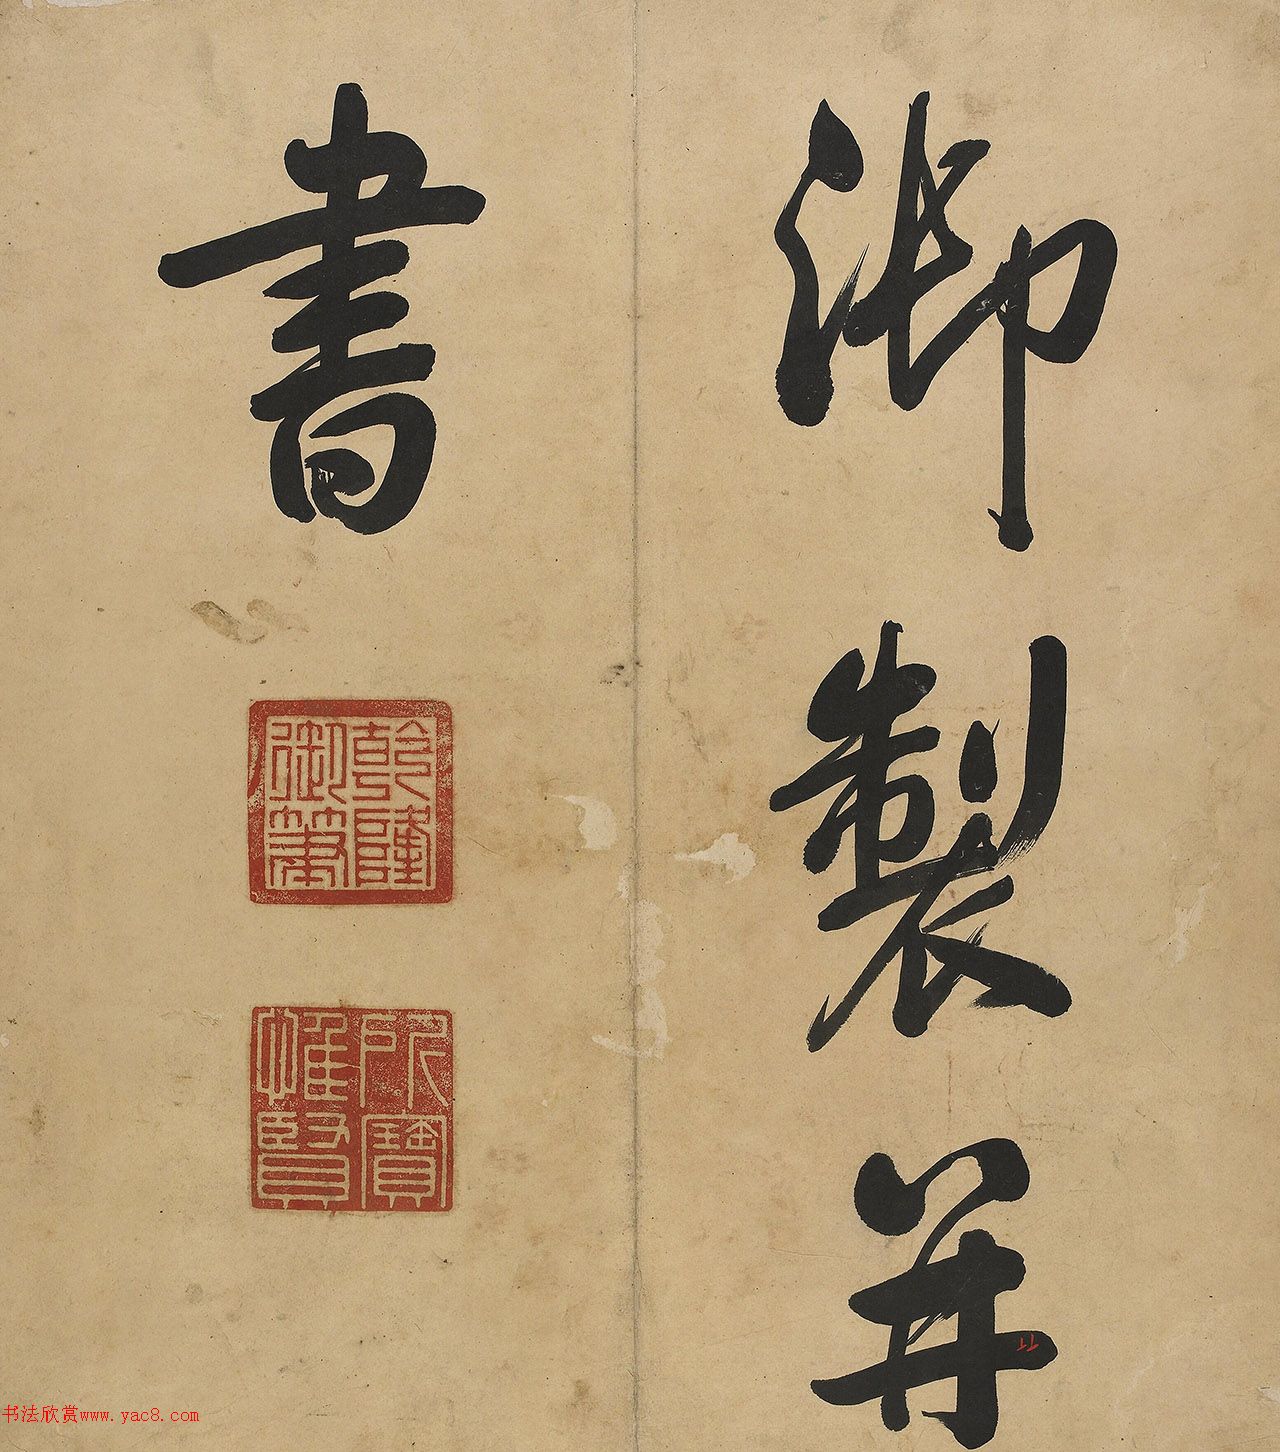 御製并
書
乾隆御筆
所寶惟賢
书法欣赏www.yac8.com